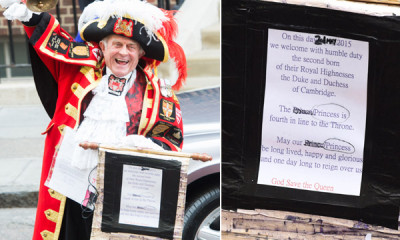 On this day 2nd MAY 2015
we welcome with humble duty
the second born
of their Royal Highnesses
the Duke and Duchess
of Cambridge.
The Princess is
fourth in line to the Throne.
May our Princess
be long lived, happy and glorious
and one day long to reign over us
God Save the Queen